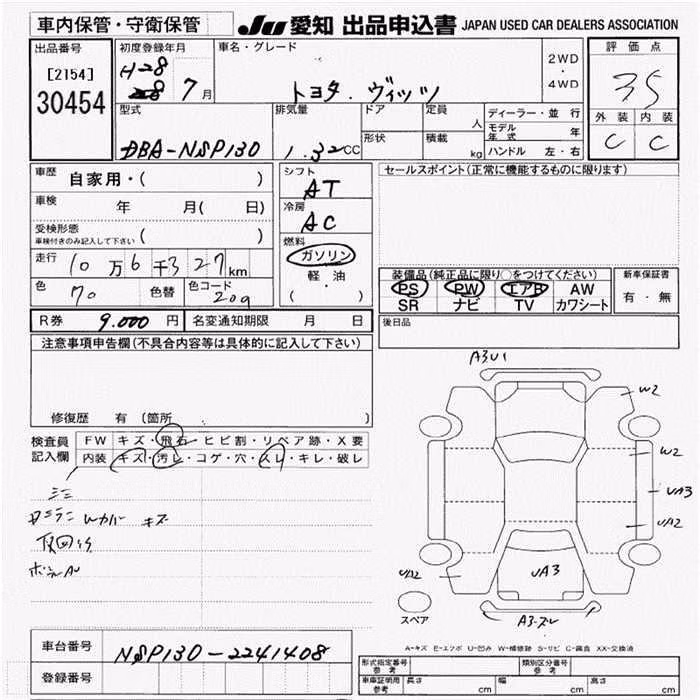 車内保管・守衛保管 JU 愛知 出品申込書 JAPAN USED CAR DEALERS ASSOCIATION
出品番号 初度登録年月 車名・グレード 2WD・4WD 評価点
[2154] H28 7月 トヨタ・ヴィッツ 3.5
30454
型式 排気量 ドア 定員 人 ディーラー・並行 外装 内装
DBA-NSP130 1.32CC 形状 積載 kg モデル年式 年 C C
ハンドル 左・右
車歴 自家用・( ) シフト AT セールスポイント(正常に機能するものに限ります)
車検 年 月( 日) 冷房 AC
受検形態 車検付きのみ記入して下さい ( ) 燃料
走行 10万6千327km ガソリン・軽油 ( )
装備品(純正品に限り○をつけてください) 新車保証書
PS PW エアB AW 有・無
SR ナビ TV カワシート
色 70 色替 色コード 209
R券 9.000円 名変通知期限 月 日 後日品
注意事項申告欄(不具合内容等は具体的に記入して下さい)
修復歴 有 (箇所
検査員記入欄 FW キズ・飛石・ヒビ割・リペア跡・X要
内装 キズ・汚レ・コゲ・穴・スレ・キレ・破レ
Wカバー キズ
A3U1
W2
W2
UA3
UA2
UA2
UA3
A3-ズレ
スペア
A-キズ E-エクボ U-凹み W-補修跡 S-サビ C-腐食 XX-交換済
車台番号 NSP130-2241408
登録番号
形式指定番号 参考 類別区分番号 参考
車庫証明用 参考 長さ cm 幅 cm 高さ cm